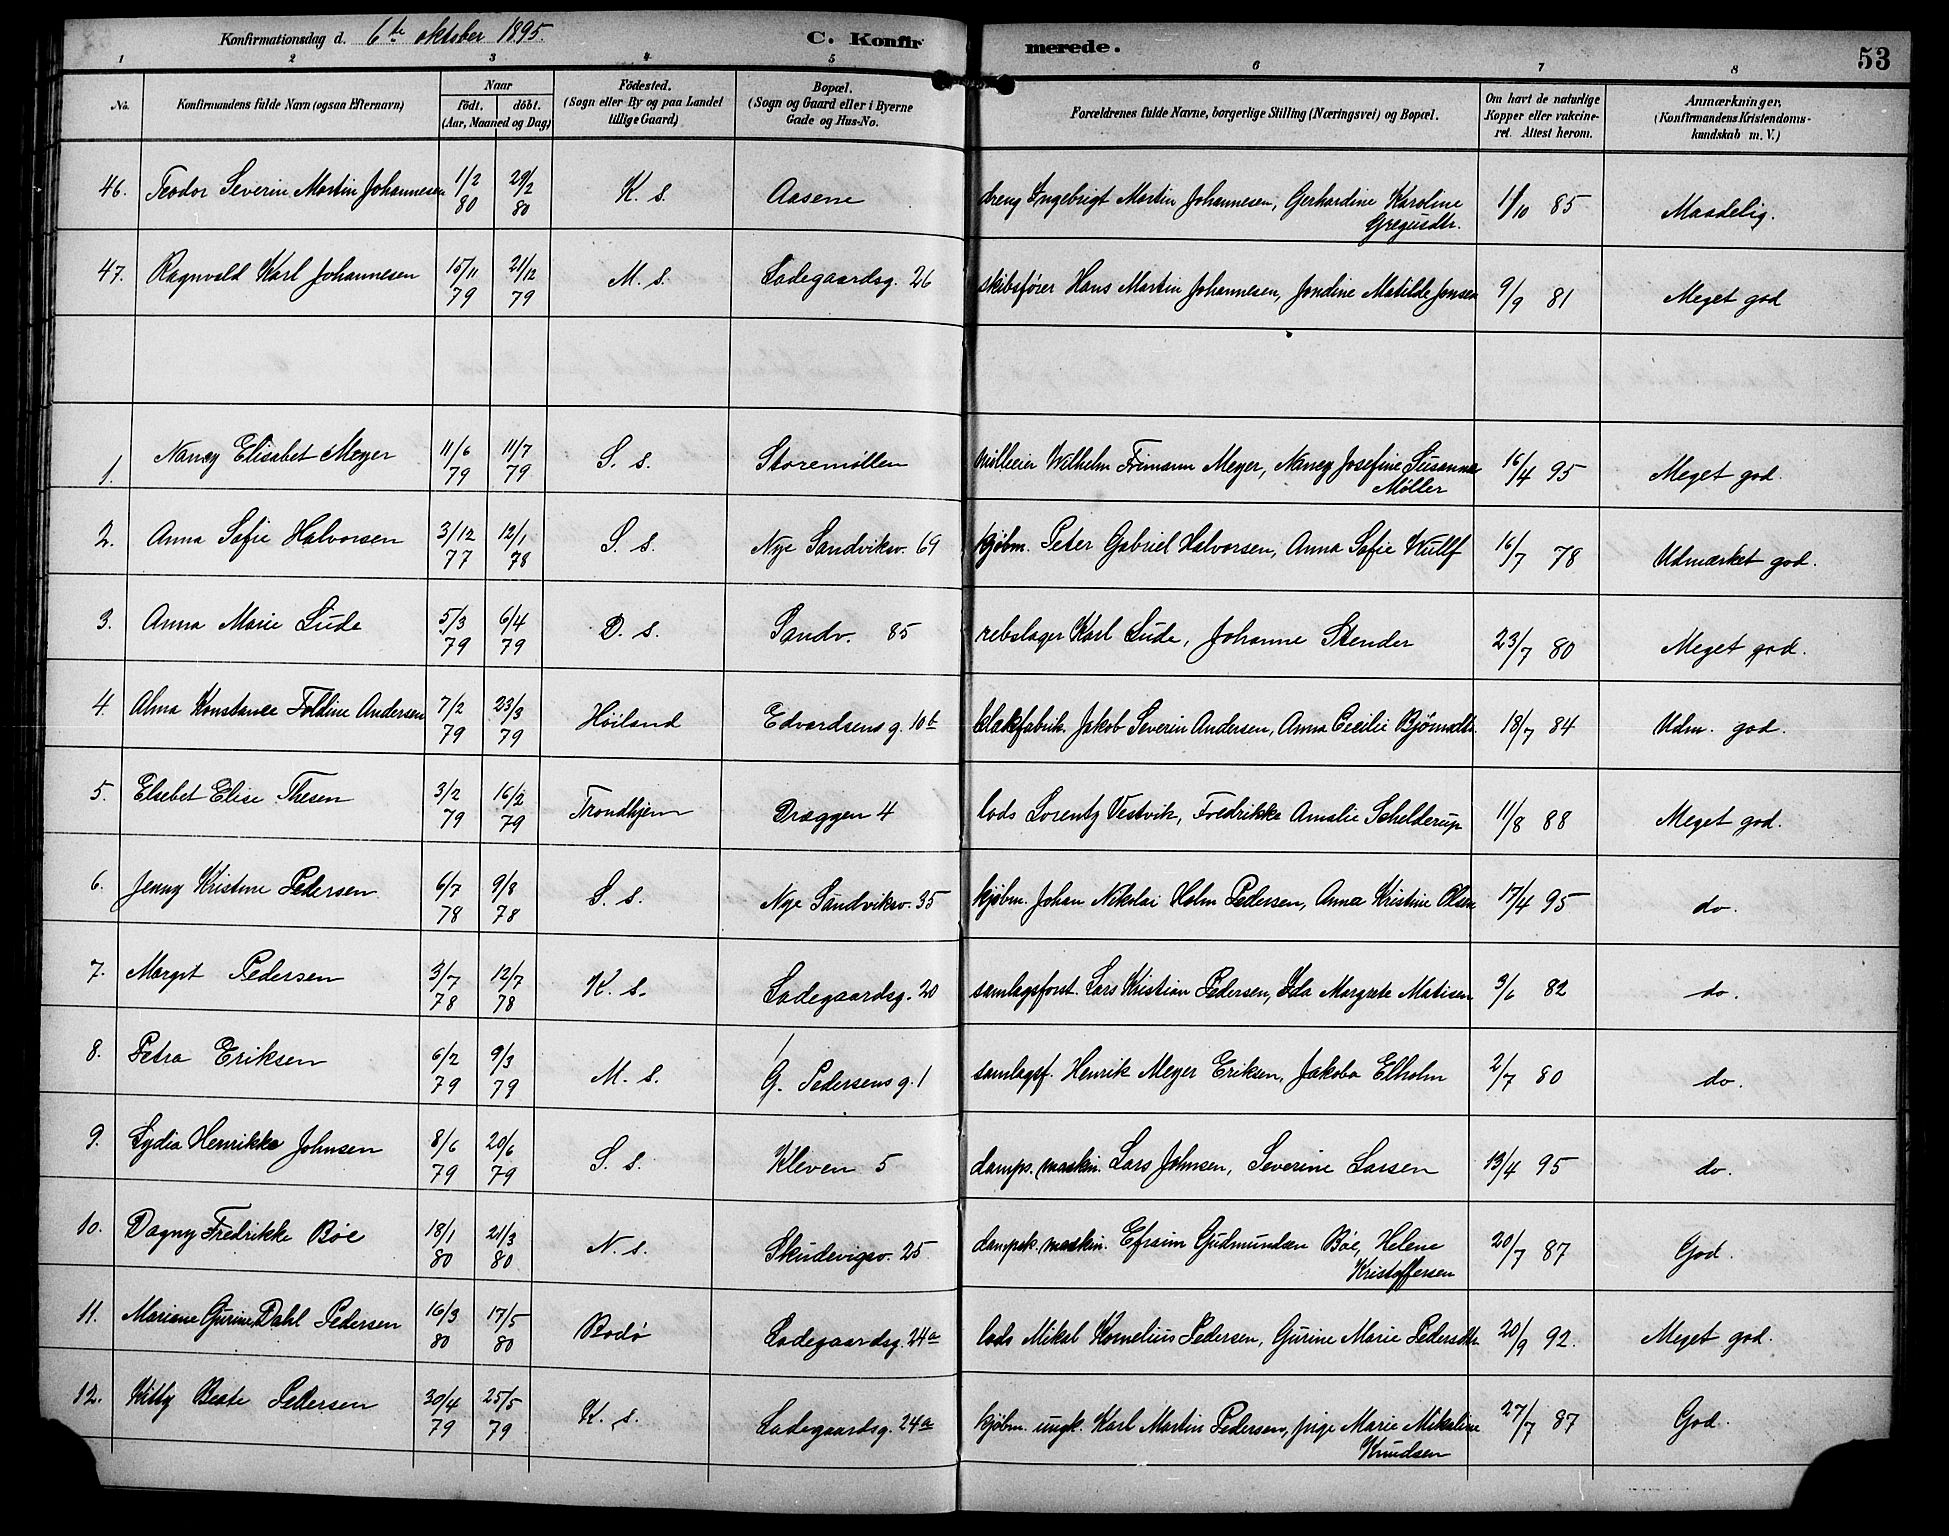 Konfirmationsdag d. 6te oktober 1895.
C. Konfirmerede.
53
1 2 3 4 5 6 7 8
No. Konfirmandens fulde Navn (ogsaa Efternavn) Naar födt. döbt. (Aar, Maaned og Dag) Födested. (Sogn eller By og paa Landet tillige Gaard) Bopæl. (Sogn og Gaard eller i Byerne Gade og Hus-No. Forældrenes fulde Navne, borgerlige Stilling (Næringsvei) og Bopæl. Om havt de naturlige Kopper eller vakcineret. Attest herom. Anmærkninger. (Konfirmandens Kristendomskundskab m. V.)
46. Teodor Severin Martin Johannesen 1/2 80 29/2 80 K. s. Aasene dreng Ingebrigt Martin Johannesen, Gerhardine Karoline Gregusdtr. 1/10 85 Maadelig.
47. Ragnvald Karl Johannesen 15/11 79 21/12 79 M. s. Ladegaardsg. 26 skibsfører Hans Martin Johannesen, Jondine Matilde Jonsen 9/9 81 Meget god
1. Nancy Elisabet Meyer 11/6 79 11/7 79 S. s. Storemøllen mølleeier Wilhelm Frimann Meyer, Nancy Josefine Susanna Møller 16/4 95 Meget god.
2. Anna Sofie Halvorsen 3/12 77 12/1 78 S. s. Nye Sandviksv. 69 kjøbm. Peter Gabriel Halvorsen, Anna Sofie Wullf 16/7 78 Udmærket god.
3. Anna Marie Lude 5/3 79 6/4 79 D. s. Sandv. 85 rebslager Karl Lude, Johanne Stender 23/7 80 Meget god.
4. Alma Konstance Toldine Andersen 7/2 79 23/3 79 Høiland Edvardsens g. 10b blækfabrik. Jakob Severin Andersen, Anna Cecilie Bjørnsdtr. 18/7 84 Udm. god.
5. Elsebet Elise Thesen 3/2 79 16/2 79 Trondhjem Dræggen 4 lods Lorentz Vestvik, Fredrikke Amalie Schelderup 11/8 88 Meget god.
6. Jenny Kristine Pedersen 6/7 78 9/8 78 S. s. Nye Sandviksv. 35 kjøbm. Johan Nikolai Holm Pedersen, Anna Kristine Olsen 17/4 95 do.
7. Margit Pedersen 3/7 78 12/7 78 K. s. Ladegaardsg. 20 samlagsforst. Lars Kristian Pedersen, Ida Margrete Matisen 3/6 82 do.
8. Petra Eriksen 6/2 79 9/3 79 M. s. G. Pedersens g. 1 samlagsf. Henrik Meyer Eriksen, Jakoba Elholm 2/7 80 do.
9. Lydia Henrikke Johnsen 8/6 79 20/6 79 S. s. Kleven 5 damps. maskin. Lars Johnsen, Severine Larsen 13/4 95 do.
10. Dagny Fredrikke Bøe 18/1 80 21/3 80 N. s. Skudevigsv. 25 dampsk. maskin. Efraim Gudmundsen Bøe, Helene Kristoffersen 20/7 87 God.
11. Mariane Gurine Dahl Pedersen 16/3 80 17/5 80 Bodø Ladegaardsg. 24a lods Mikal Kornelius Pedersen, Gurine Marie Pedersdtr. 20/9 92. Meget god.
12. Kitty Beate Pedersen 30/4 79 25/5 79 K. s. Ladegaardsg. 24a kjøbm. ungk. Karl Martin Pedersen, pige Marie Mikaline Knudsen 27/7 87 God.